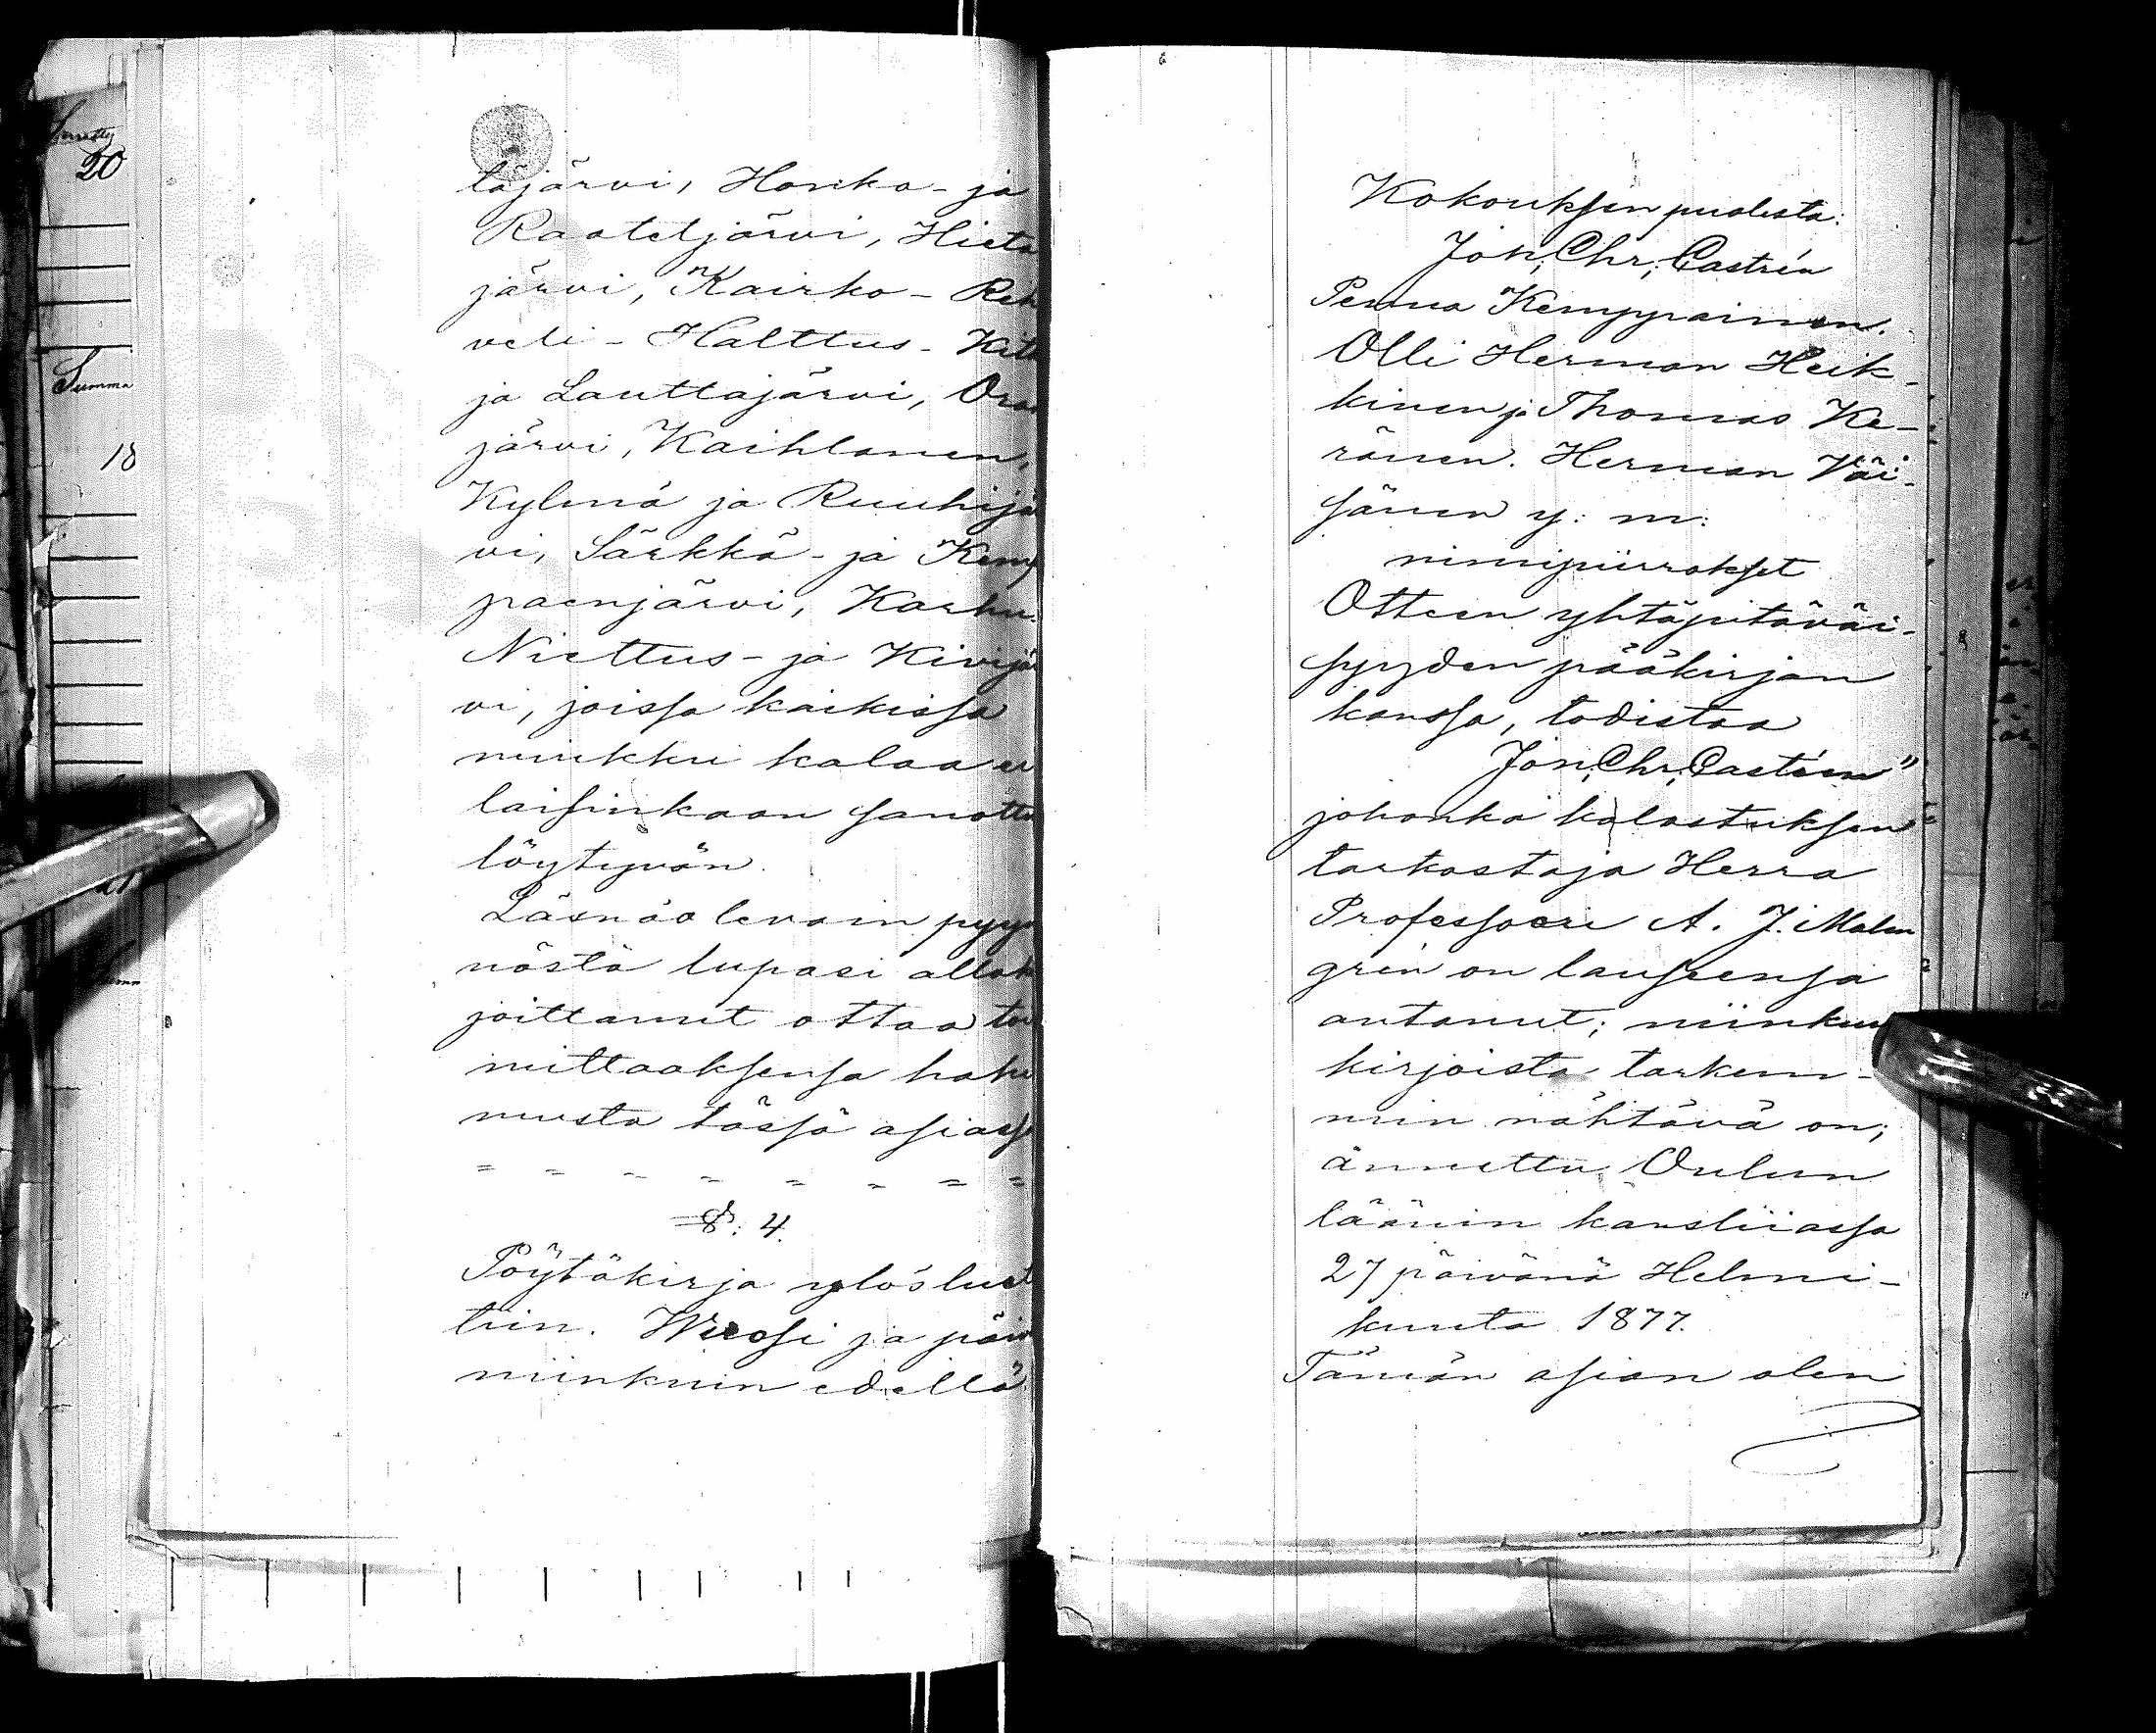 Summa
20
Summa
18
läjärvi, Honka- ja
Raateljärvi, Hieta
järvi, Kairko- Reh
veli- Halttus- Kit
ja Lauttajärvi, Ora
järvi, Kaihlanen,
Kylmä ja Ruuhijä
vi, Särkkä- ja Kem
paenjärvi, Karhu-
Niettus- ja Kivijä
vi, joissa kaikissa
muikku kalaa ei
laisinkaan sanottu
löytyvän.
Läsnäolevain pyy
nöstä lupasi allek
joittanut ottaa toi
mittaaksensa hake
musta tässä asiass
= = = = = = = =
§. 4.
Pöytäkirja ylösluet
tiin. Wuosi ja päiv
niinkuin edellä.
Kokouksen puolesta:
Joh; Chr; Castrén
Pekka Kemppainen.
Olli Herman Heik-
kinen ja Thomas Ke-
ränen. Herman Väi-
sänen y: m:
nimipiirrokset
Otteen yhtäpitäväi-
syyden pääkirjan
kanssa, todistaa
Joh; Chr; Castrén"
johonka kalastuksen
tarkastaja Herra
Professori A. J. Malm
gren on lauseensa
antanut; niinkuin
kirjoista tarkem-
min nähtävä on;
annettu Oulun
läänin kansliiassa
27 päivänä Helmi-
kuuta 1877.
Tämän asian olen